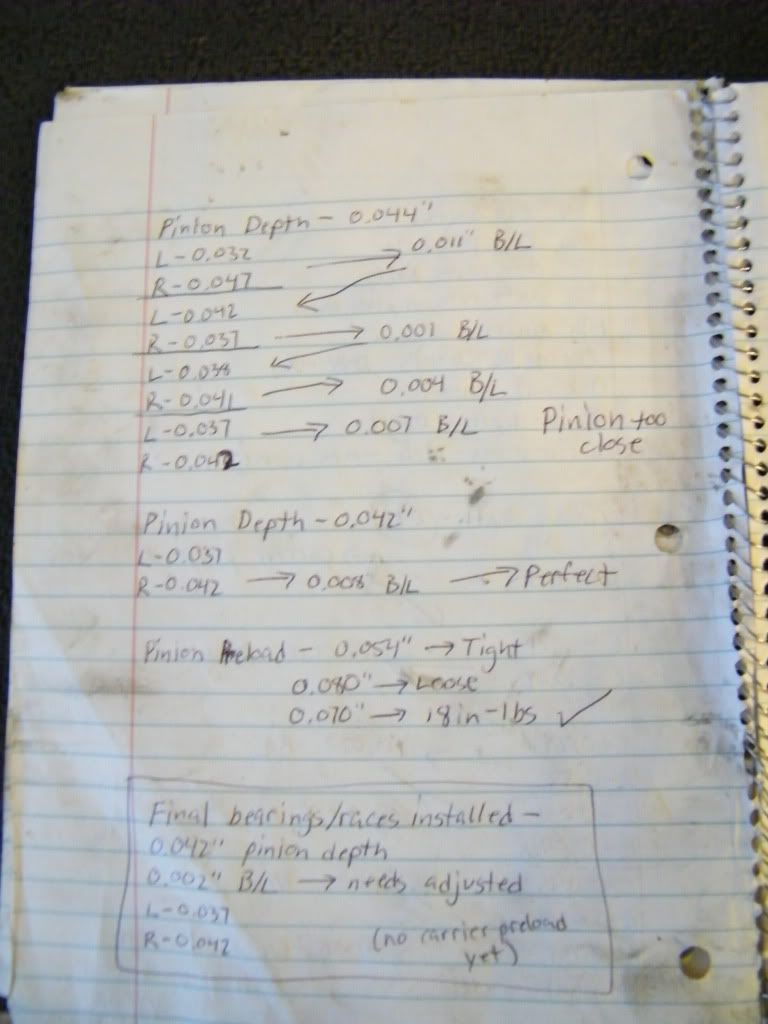 Pinion Depth - 0.044"
L - 0.032
R - 0.047 → 0.011" B/L
L - 0.042
R - 0.037 → 0.001 B/L
L - 0.038
R - 0.041 → 0.004 B/L
L - 0.037 → 0.007 B/L
R - 0.042
Pinion too
close
Pinion Depth - 0.042"
L - 0.037
R - 0.042 → 0.008 B/L → Perfect
Pinion Preload - 0.054" → Tight
0.080" → Loose
0.070" → 18 in-lbs ✓
Final bearings/races installed -
0.042" pinion depth
0.002" B/L → needs adjusted
L - 0.037
R - 0.042 (no carrier preload
yet)